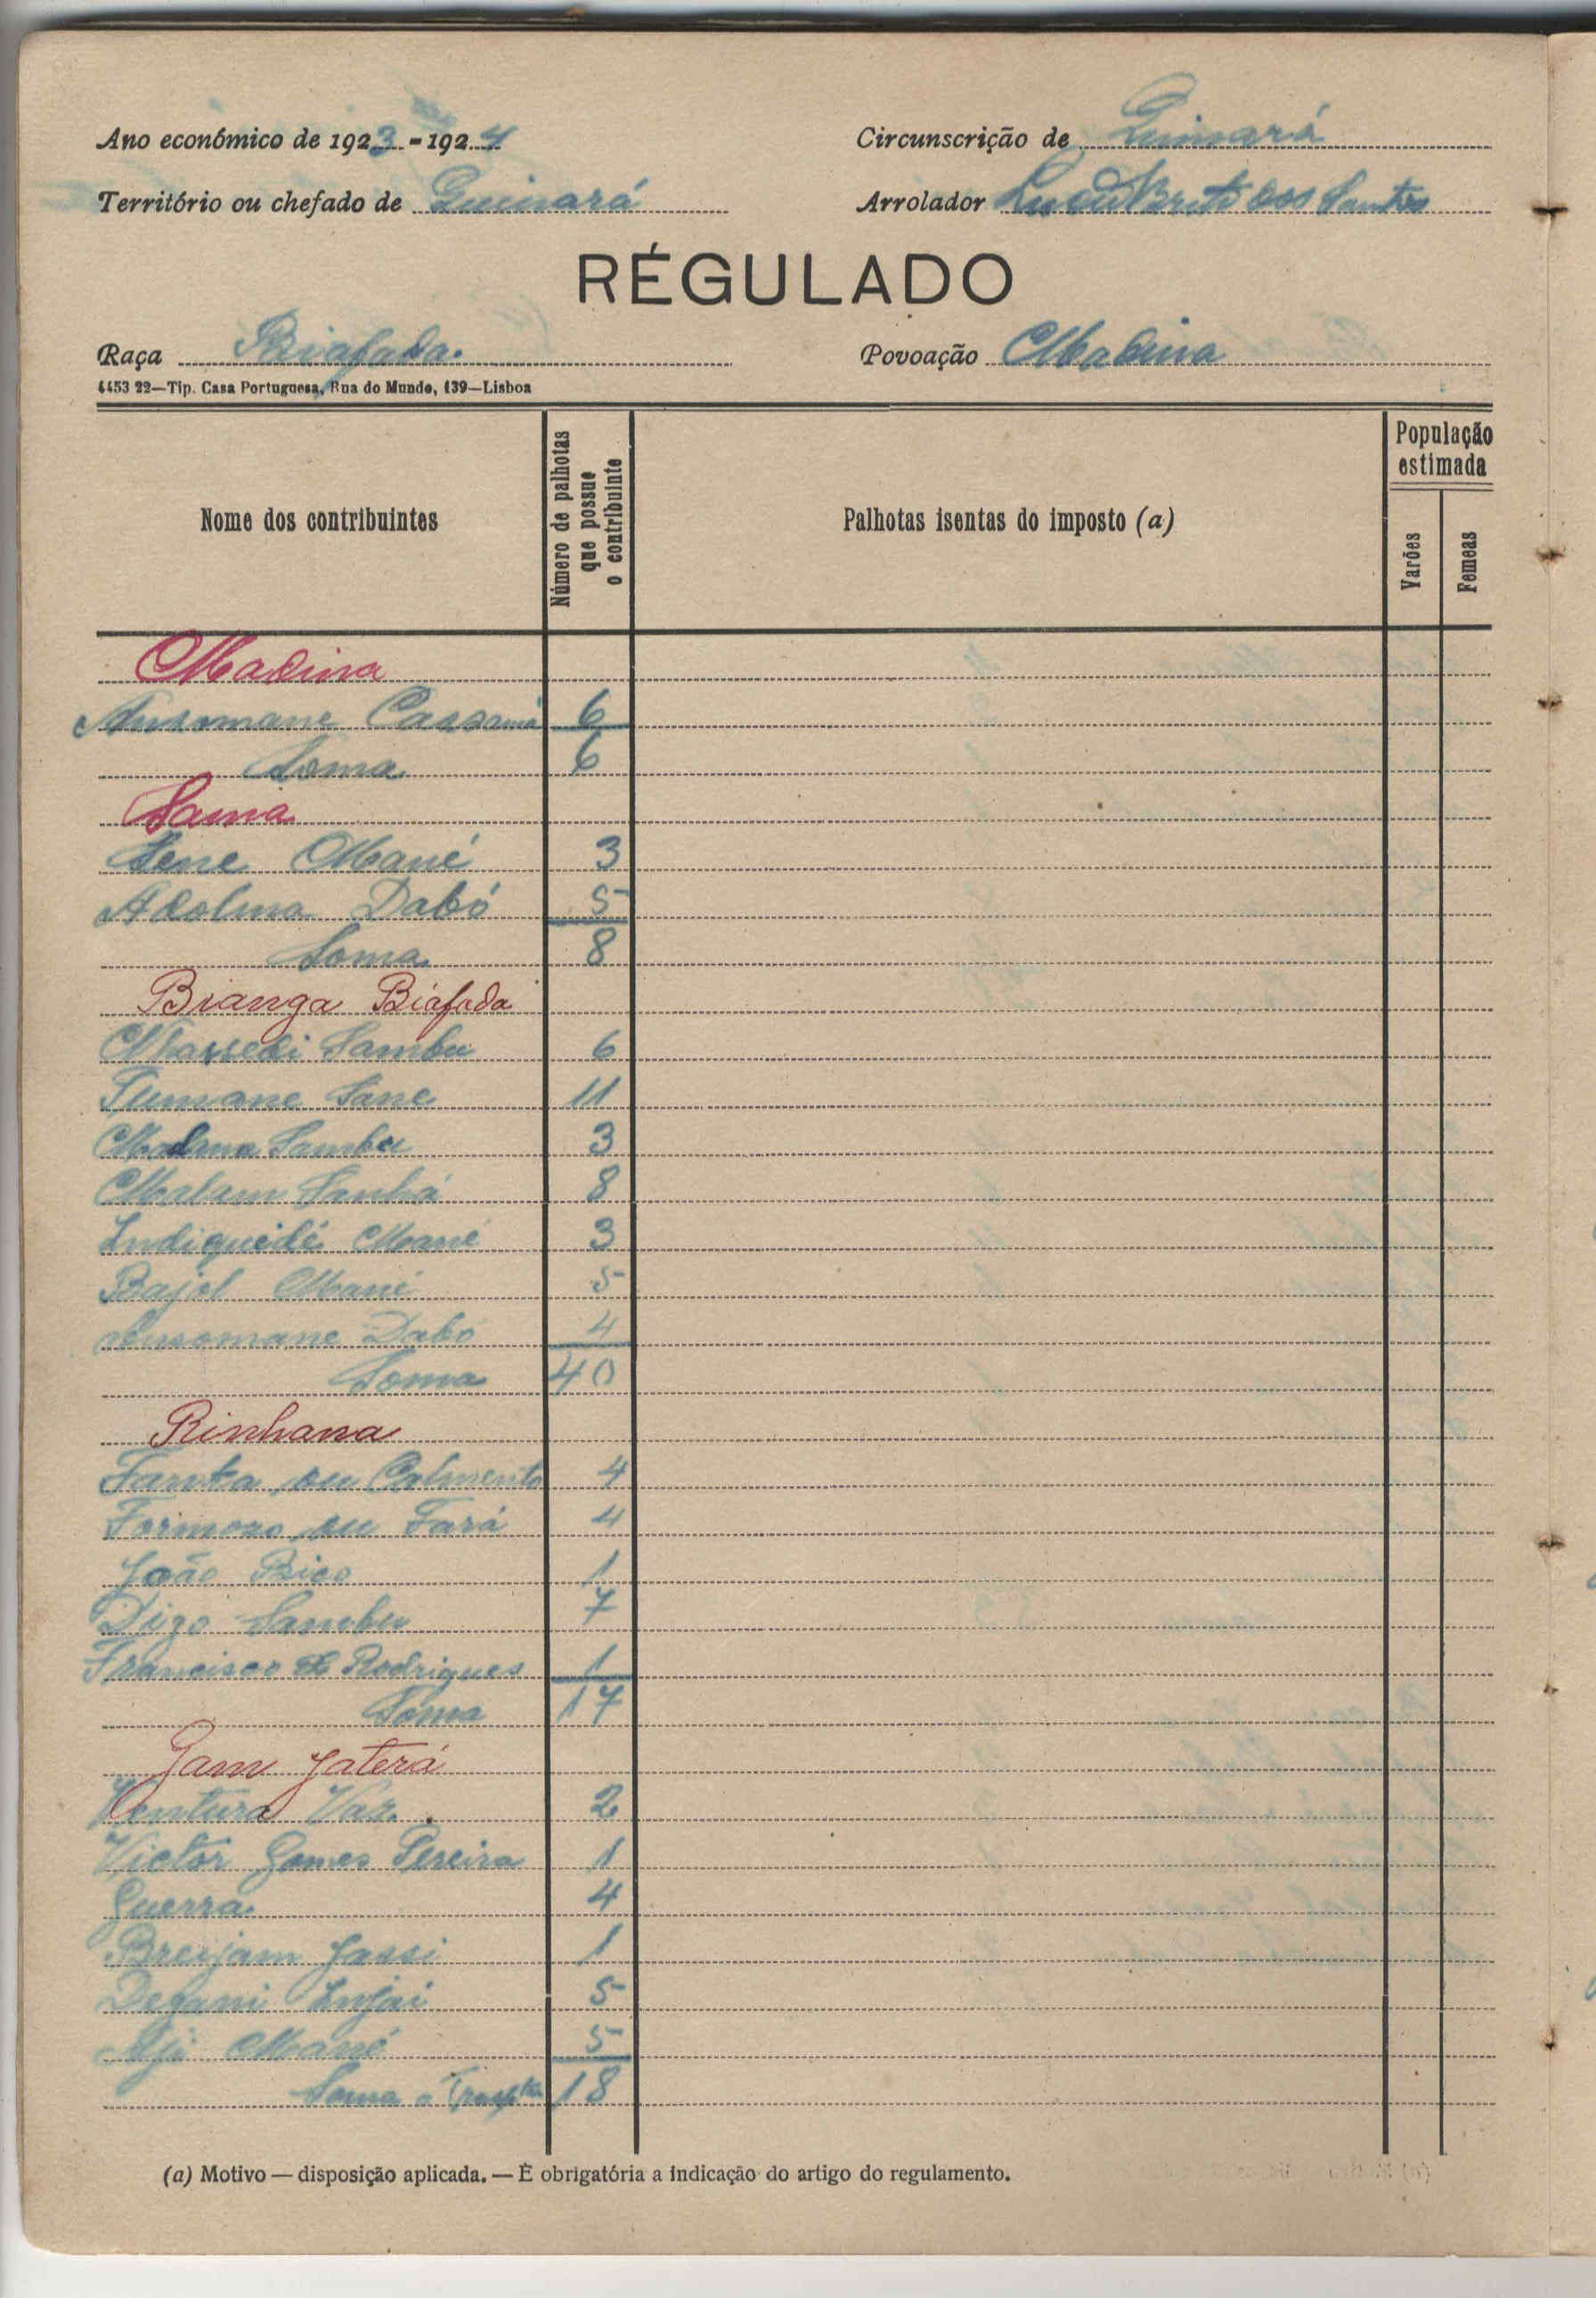 Ano económico de 1923-1924
Circunscrição de Quinará
Território ou chefado de Quinará
Arrolador Brito dos Santos
RÉGULADO
Raça Biafada.
Povoação Madina
4453 22—Tip. Casa Portuguesa, Rua do Mundo, 139—Lisboa
Nome dos contribuintes
Número de palhotas que possue o contribuinte
Palhotas isentas do imposto (a)
População estimada
Varões
Femeas
Madina
Ansomane Cassamá 6
Soma 6
Sama
Sene Mané 3
Adolma Dabó 5
Soma 8
Bianga Biafada
Massedi Sambu 6
Tumane Sane 11
Sambu 3
Malam Sanhá 8
Indiquidé Mané 3
Bajel Mané 5
Ansomane Dabó 4
Soma 40
Rinhana
Fanka ou 4
Formozo ou Fará 4
João Bico 1
Dizo Sambu 7
Francisco Rodrigues 1
Soma 17
Gam Jaterá
Ventura Vaz. 2
Victor Gomes Pereira 1
Guerra 4
Breijam Jassi 1
Injai 5
Aji Mané 5
Soma a 18
(a) Motivo — disposição aplicada. — É obrigatória a indicação do artigo do regulamento.